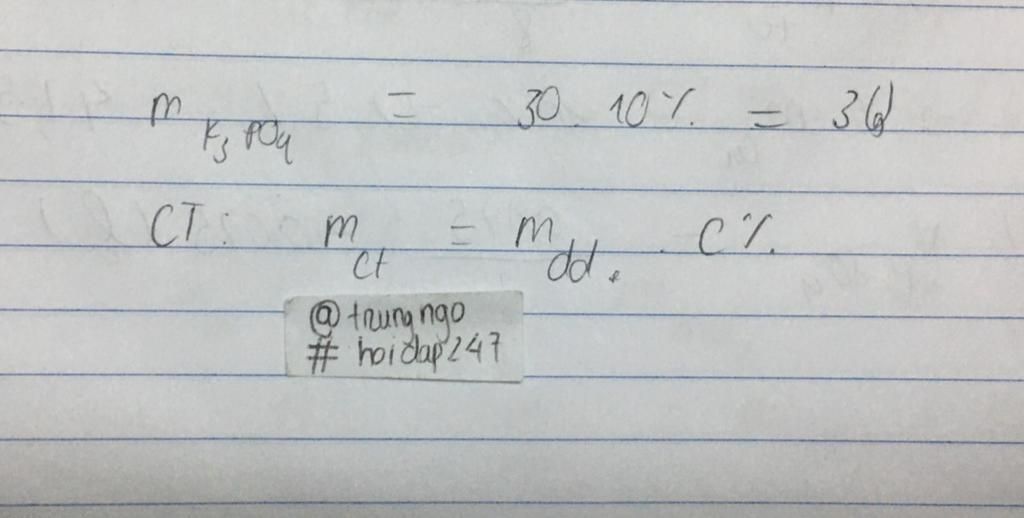 m K₃PO₄ = 30 . 10% = 3(g)
CT: m ct = m dd . C%
@trungngo
# hoidap247